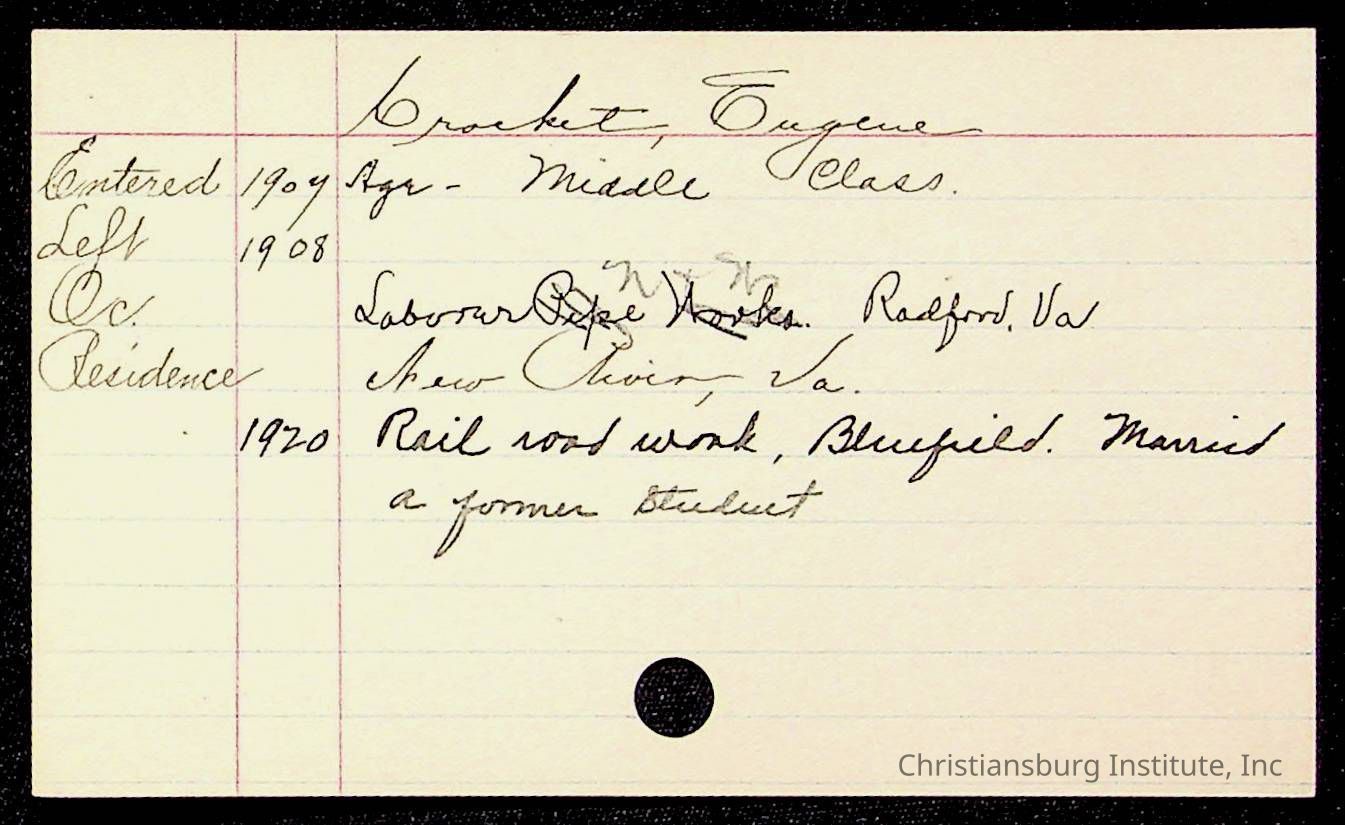 Crocket, Eugene
Entered 1907 Age - Middle Class.
Left 1908
Oc. Labourer Pipe Works. N & W Radford, Va
Residence New River, Va.
1920 Rail road work, Bluefield. Married
a former student
Christiansburg Institute, Inc